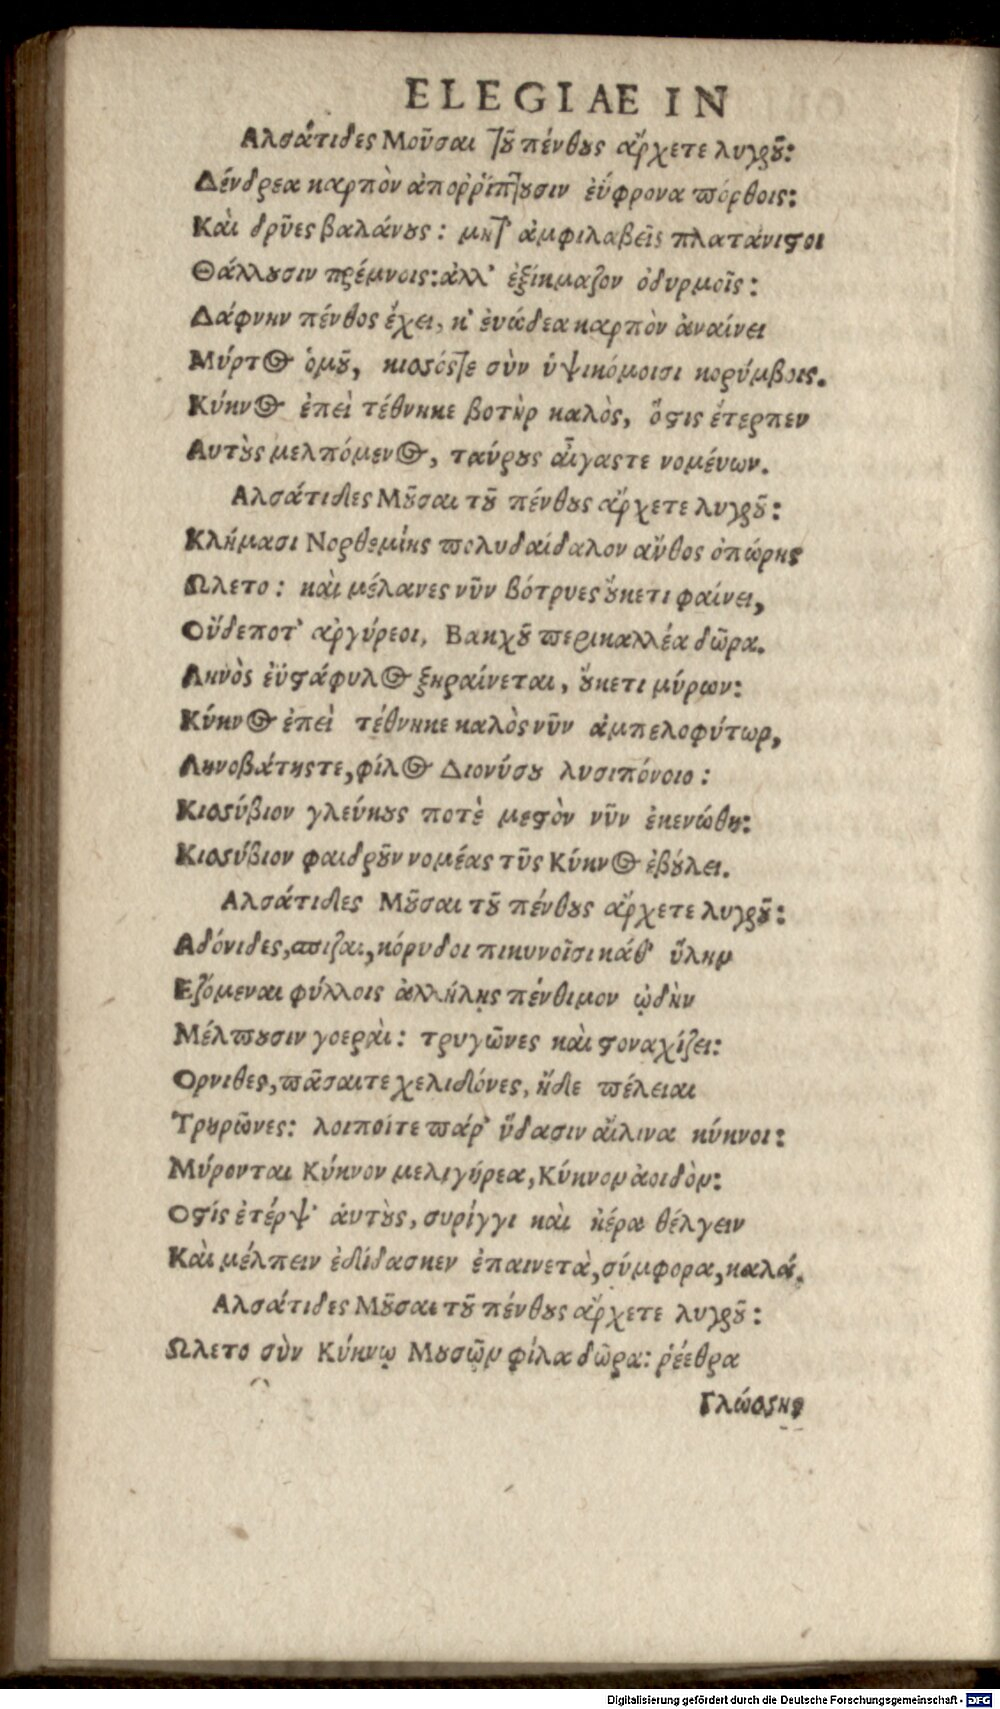 ELEGIAE IN
Αλσάτιδες Μοῦσαι τοῦ πένθους ἄρχετε λυγροῦ:
Δένδρεα καρπὸν ἀποῤῥίπτουσιν ἐΰφρονα πόρθοις:
Καὶ δρῦες βαλάνους: μητ' ἀμφιλαβεῖς πλατάνιστοι
Θάλλουσιν πρέμνοις: ἀλλ' ἐξίκμαζον ὀδυρμοῖς:
Δάφνην πένθος ἔχει, κ' ἐυώδεα καρπὸν ἀναίνει
Μύρτος ὁμοῦ, κισσόςτε σὺν ὑψικόμοισι κορύμβοις.
Κύκνος ἐπεὶ τέθνηκε βοτὴρ καλὸς, ὅστις ἔτερπεν
Αυτοὺς μελπόμενος, ταύρους αἶγαςτε νομένων.
Αλσάτιδες Μοῦσαι τοῦ πένθους ἄρχετε λυγροῦ:
Κλήμασι Νορθεμίης πολυδαίδαλον ἄνθος ὀπώρης
Ωλετο: καὶ μέλανες νῦν βότρυες οὔκετι φαίνει,
Οὔδεποτ' ἀργύρεοι, Βακχοῦ περικαλλέα δῶρα.
Ληνὸς ἐϋστάφυλος ξηραίνεται, οὔκετι μύρων:
Κύκνος ἐπεὶ τέθνηκε καλὸς νῦν ἀμπελοφύτωρ,
Ληνοβάτηςτε, φίλος Διονύσου λυσιπόνοιο:
Κισσύβιον γλεύκους ποτὲ μεστὸν νῦν ἐκενώθη:
Κισσύβιον φαιδροῦν νομέας τοῦς Κύκνος ἐβούλει.
Αλσάτιδες Μοῦσαι τοῦ πένθους ἄρχετε λυγροῦ:
Αδόνιδες, σπιζαι, κόρυδοι πικυνοῖσι κάθ' ὕλην
Εζόμεναι φύλλοις ἀλλήλης πένθιμον ᾠδὴν
Μέλπουσιν γοεραὶ: τρυγῶνες καὶ στοναχίζει:
Ορνιθες, πᾶσαιτε χελιδόνες, ἤδε πέλειαι
Τρυρῶνες: λοιποίτε πάρ' ὕδασιν αἴλινα κύκνοι:
Μύρονται Κύκνον μελιγήρεα, Κύκνον ἀοιδὸν:
Οστίς ἐτέρψ' ἀυτοὺς, συρίγγι καὶ κέρα θέλγειν
Καὶ μέλπειν ἐδίδασκεν ἐπαινετὰ, σύμφορα, καλά.
Αλσάτιδες Μοῦσαι τοῦ πένθους ἄρχετε λυγροῦ:
Ωλετο σὺν Κύκνῳ Μουσῶν φίλα δῶρα: ῥέεθρα
Γλώσσης
Digitalisierung gefördert durch die Deutsche Forschungsgemeinschaft - DFG